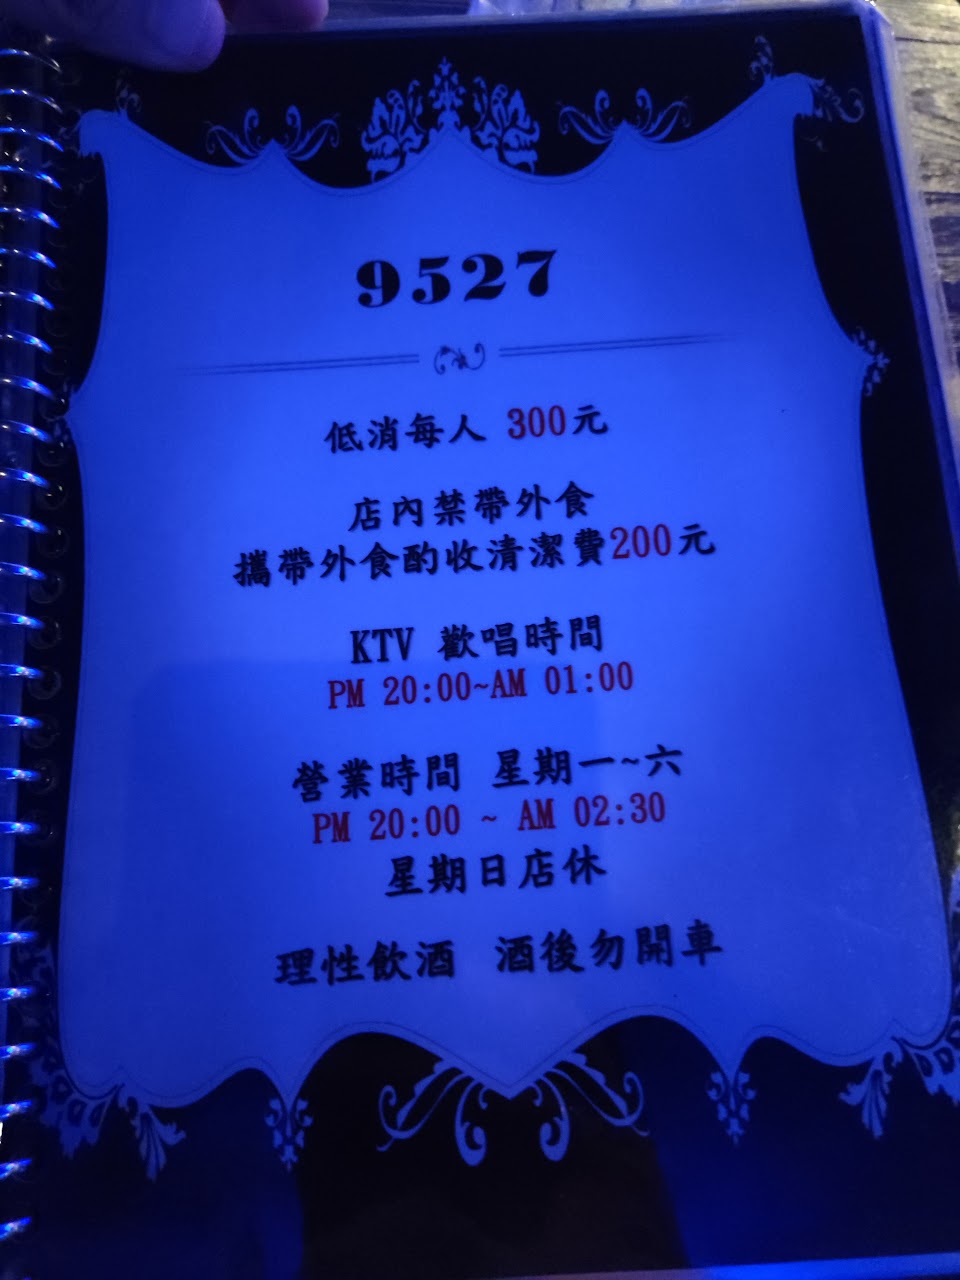 9527
低消每人 300元
店內禁帶外食
攜帶外食酌收清潔費200元
KTV 歡唱時間
PM 20:00~AM 01:00
營業時間 星期一~六
PM 20:00 ~ AM 02:30
星期日店休
理性飲酒 酒後勿開車